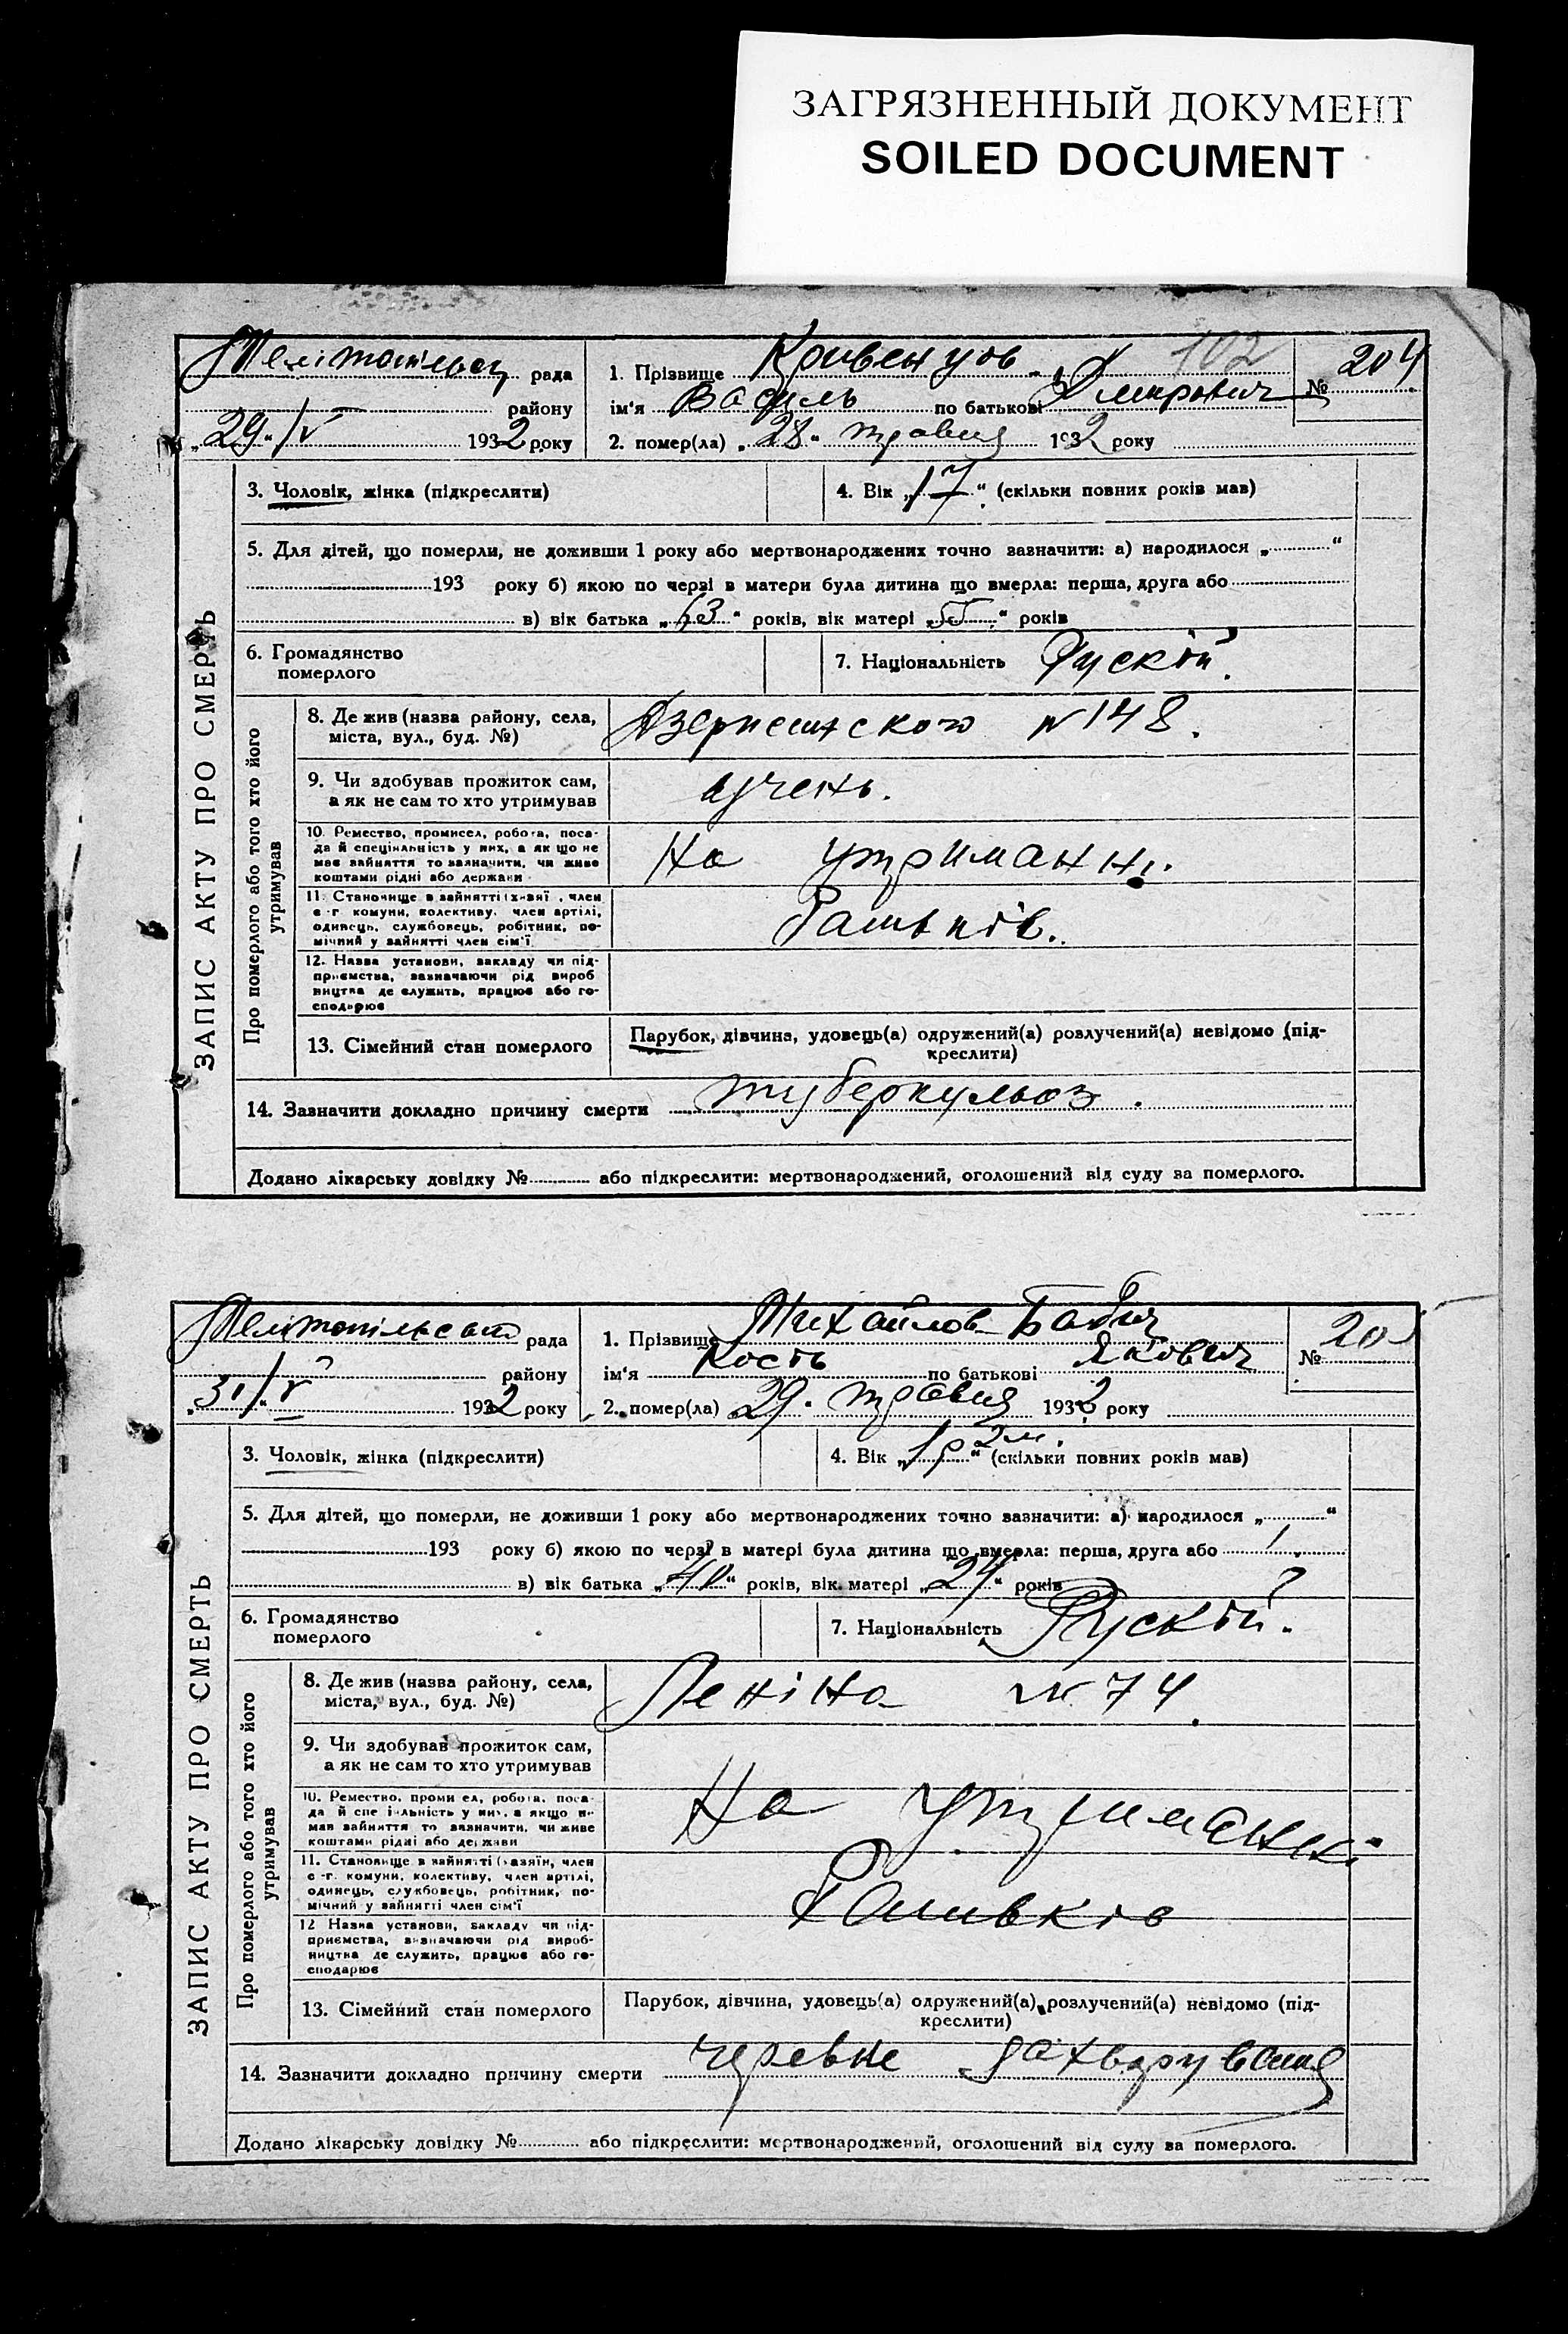 ЗАГРЯЗНЕННЫЙ ДОКУМЕНТ
SOILED DOCUMENT
ЗАПИС АКТУ ПРО СМЕРТЬ
рада
району
„29“/V 1932 року
1. Прізвище Кривенцов 102
ім'я Василь по батькові
№ 204
2. помер(ла) „28“ травня 1932 року
3. Чоловік, жінка (підкреслити)
4. Вік „17“ (скільки повних років мав)
5. Для дітей, що померли, не доживши 1 року або мертвонароджених точно зазначити: а) народилося „ “
193 року б) якою по черзі в матери була дитина що вмерла: перша, друга або
в) вік батька „63“ років, вік матері „55“ років
6. Громадянство
померлого
7. Національність Рускій.
Про померлого або того хто його
утримував
8. Де жив (назва району, села,
міста, вул., буд. №)
№ 148.
9. Чи здобував прожиток сам,
а як не сам то хто утримував
учень.
10. Ремество, промисел, робота, поса-
да й спеціяльність у них, а як що не
має зайняття то зазначити, чи живе
коштами рідні або держави
На утриманні.
11. Становище в зайнятті (хазяї , член
с-г комуни, колективу, член артілі,
одинець, службовець, робітник, по-
мічний у зайнятті член сім'ї
Батьків.
12. Назва установи, закладу чи під-
приємства, зазначаючи рід вироб
ництва де служить, працює або го-
сподарює
13. Сімейний стан померлого
Парубок, дівчина, удовець(а) одружений(а) розлучений(а) невідомо (під-
креслити)
14. Зазначити докладно причину смерти туберкульоз.
Додано лікарську довідку № або підкреслити: мертвонароджений, оголошений від суду за померлого.
ЗАПИС АКТУ ПРО СМЕРТЬ
рада
району
„31“/V 1932 року
1. Прізвище Михайлов-Бабич
ім'я Кость по батькові Якович
№ 205
2. помер(ла) 29. травня 1932 року
3. Чоловік, жінка (підкреслити)
4. Вік „1 р 2 м.“ (скільки повних років мав)
5. Для дітей, що померли, не доживши 1 року або мертвонароджених точно зазначити: а) народилося „ “
193 року б) якою по черзі в матері була дитина що вмерла: перша, друга або 1.
в) вік батька „40“ років, вік матері „24“ років
6. Громадянство
померлого
7. Національність Рускій.
Про померлого або того хто його
утримував
8. Де жив (назва району, села,
міста, вул., буд. №)
Леніна № 74.
9. Чи здобував прожиток сам,
а як не сам то хто утримував
10. Ремество, проми ел, робота, поса-
да й спе іяльність у них, а якщо не
має зайняття то зазначити, чи живе
коштами рідні або держави
На утриманні
11. Становище в зайнятті (хазяїн, член
с-г. комуни, колективу, член артілі,
одинець, службовець, робітник, по-
мічний у зайнятті член сім'ї
Батьків
12 Назва установи, закладу чи під-
приємства, зазначаючи рід вироб-
ництва де служить, працює або го-
сподарює
13. Сімейний стан померлого
Парубок, дівчина, удовець(а) одружений(а), розлучений(а) невідомо (під-
креслити)
14. Зазначити докладно причину смерти черевне захворування
Додано лікарську довідку № або підкреслити: мертвонароджений, оголошений від суду за померлого.